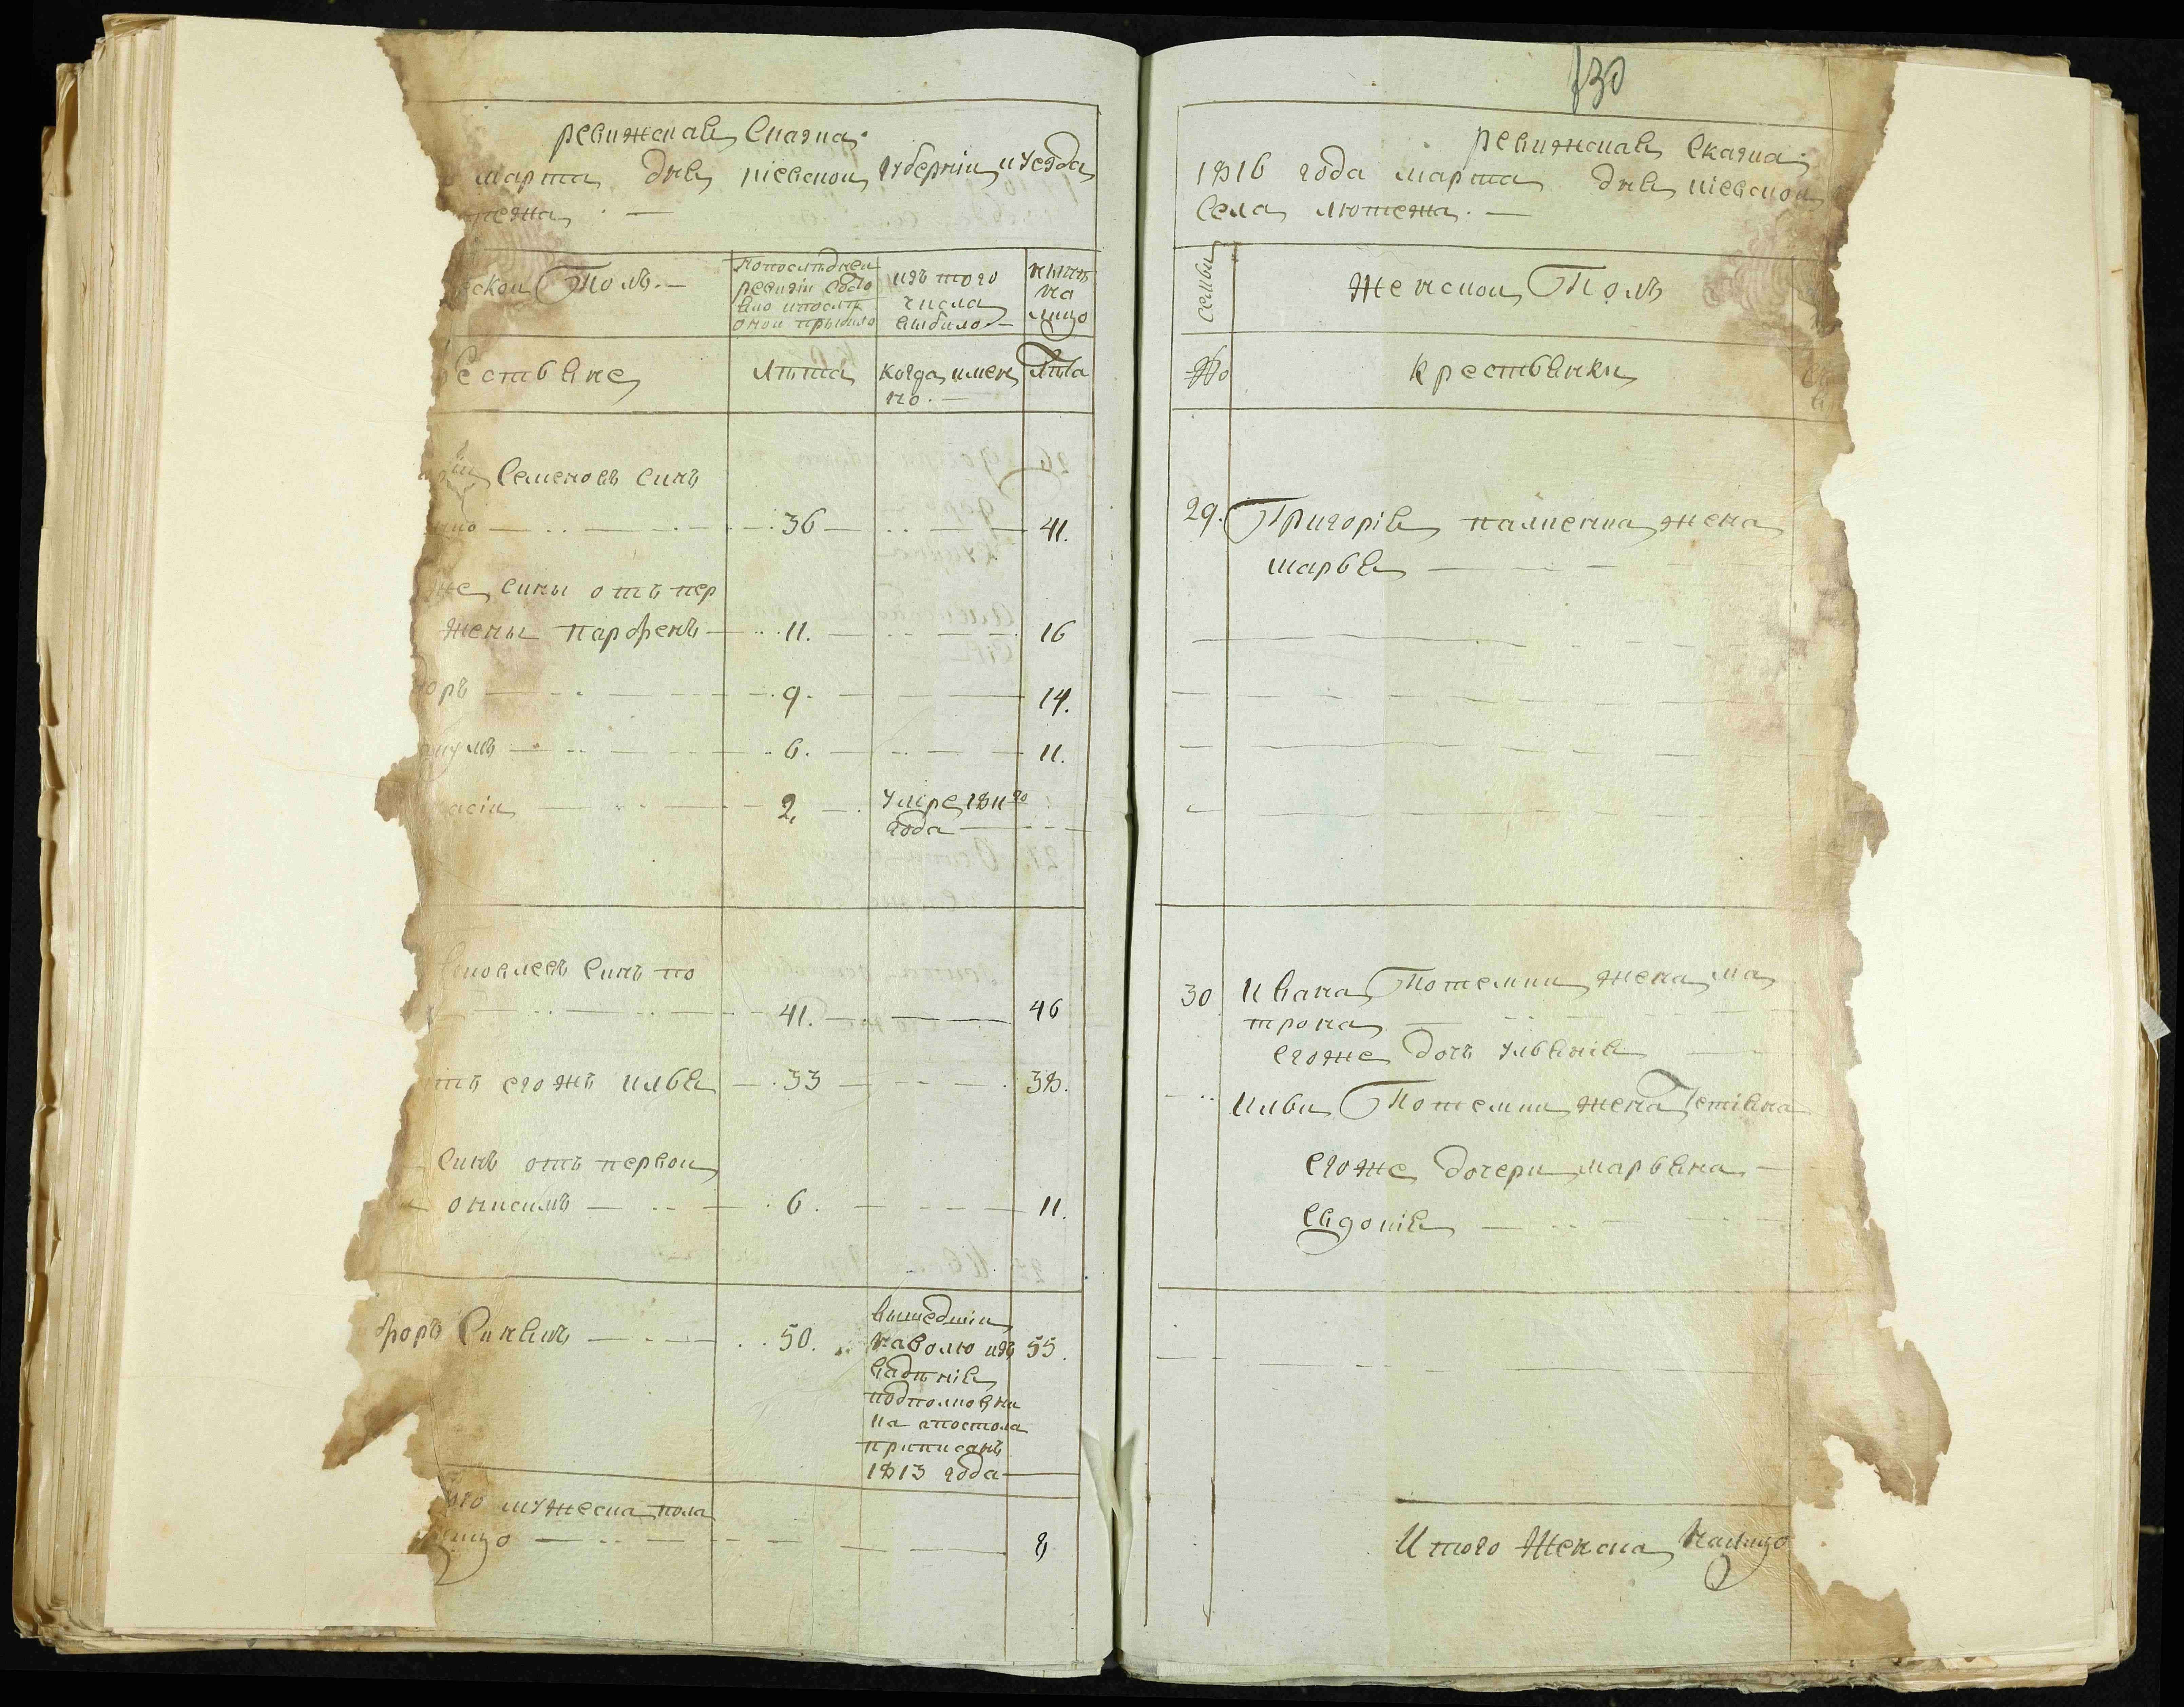 ревижская Сказка
марта дня киевской губернии и уезда
тежа
ской Полъ
Попоследней
ревизии состо
яло и после
оной прибыло
изъ того
числа
выбило
нынѣ
на
лицо
естьяне
Лѣта
когда имен
но
Лѣта
Семеновъ синъ
36 41.
же сины отъ пер
жены парфенъ 11. 16
оръ 9. 14.
умъ 6. 11.
асій 2 умре 1811го
года
ковлевъ Синъ по
41. 46
тъ егожъ илья 33 38.
синъ отъ первой
онисимъ 6. 11.
форъ Синякъ 50. 55.
вишедший
наволю изъ
владѣния
подполковни
ка апостола
приписанъ
1813 года
го мужеска пола
лицо 8
130
ревижская Сказка
1816 года марта дня киевской
Села лютежа
семьи
Женской Полъ
№
крестьянки
29. Григорія палиенка жена
марья
30 Ивана Потемки жена ма
трона
егоже дочь ульянія
Ильи Потемки жена Тетіяна
егоже дочери марьяна
Евдокія
Итого Женска Налицо